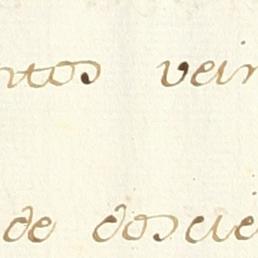 ntos vein
de doscie